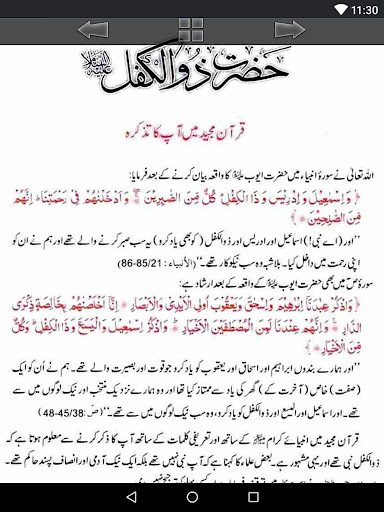 11:30
حضرت ذوالکفل علیہ السلام
قرآن مجید میں آپ کا تذکرہ
اللہ تعالیٰ نے سورۂ انبیاء میں حضرت ایوب علیہ السلام کا واقعہ بیان کرنے کے بعد فرمایا:
﴿ وَإِسْمَعِيلَ وَإِدْرِيسَ وَذَا الْكِفْلِ كُلٌّ مِّنَ الصَّبِرِينَ ۞ وَأَدْخَلْنَهُمْ فِي رَحْمَتِنَا إِنَّهُمْ
مِّنَ الصَّلِحِينَ ﴾
’’اور (اے نبی!) اسماعیل اور ادریس اور ذوالکفل (کو بھی یاد کرو) یہ سب صبر کرنے والے تھے اور ہم نے ان کو
اپنی رحمت میں داخل کیا۔ بلاشبہ وہ سب نیکوکار تھے۔‘‘ (الأنبیاء: 85/21-86)
سورۂ صٓ میں بھی حضرت ایوب علیہ السلام کے واقعہ کے بعد ارشاد ہے:
﴿ وَاذْكُرْ عِبْدَنَا إِبْرَهِيمَ وَإِسْحَقَ وَيَعْقُوبَ أُولِي الْأَيْدِي وَالْأَبْصَارِ ۞ إِنَّا أَخْلَصْنَهُمْ بِخَالِصَةٍ ذِكْرَى
الدَّارِ ۞ وَإِنَّهُمْ عِنْدَنَا لَمِنَ الْمُصْطَفَيْنَ الْأَخْيَارِ ۞ وَاذْكُرْ إِسْمَعِيلَ وَالْيَسَعَ وَذَا الْكِفْلِ وَكُلٌّ
مِّنَ الْأَخْيَارِ ﴾
’’اور ہمارے بندوں ابراہیم اور اسحاق اور یعقوب کو یاد کرو جو قوت اور بصیرت والے تھے۔ ہم نے اُن کو ایک
(صفت) خاص (آخرت کے) گھر کی یاد سے ممتاز کیا تھا اور وہ ہمارے نزدیک منتخب اور نیک لوگوں میں سے
تھے۔ اور اسماعیل اور الیسع اور ذوالکفل کو یاد کرو، وہ سب نیک لوگوں میں سے تھے۔‘‘ (صٓ: 45/38-48)
قرآن مجید میں انبیائے کرام کے ساتھ اور تعریفی کلمات کے ساتھ آپ کا ذکر کرنے سے معلوم ہوتا ہے کہ
ذوالکفل نبی تھے اور یہی مشہور ہے۔ بعض علماء کا کہنا ہے کہ آپ نبی نہیں تھے بلکہ ایک نیک آدمی اور انصاف پسند حاکم تھے۔